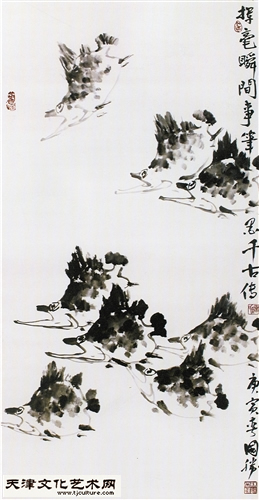 揮毫瞬間事筆墨千古傳
庚寅春國勝
天津文化艺术网
www.tjculture.com